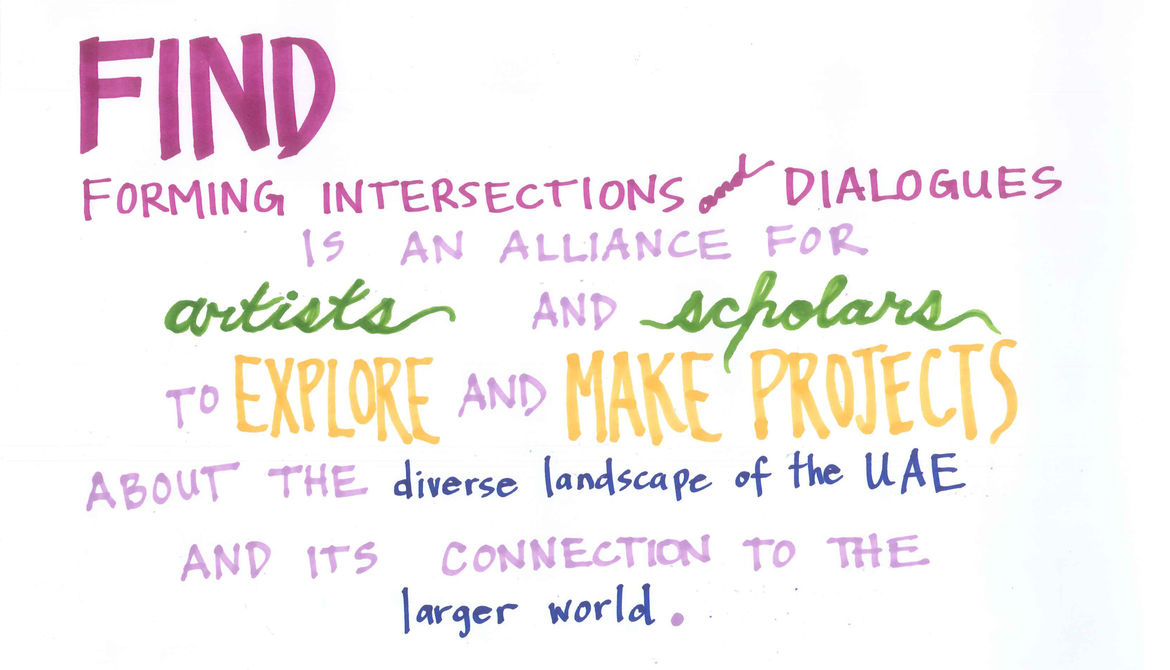 FIND
FORMING INTERSECTIONS and DIALOGUES
IS AN ALLIANCE FOR
artists AND scholars
TO EXPLORE AND MAKE PROJECTS
ABOUT THE diverse landscape of the UAE
AND ITS CONNECTION TO THE
larger world.